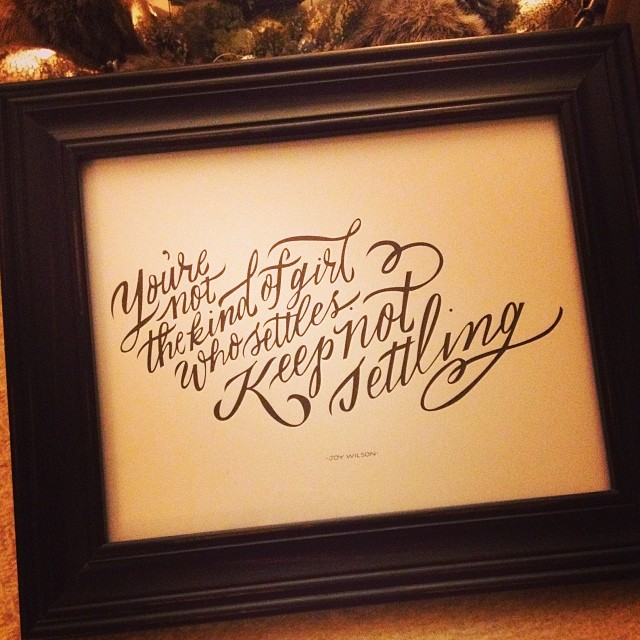 You're
not
the kind of girl
who settles.
Keep not
settling
-JOY WILSON-